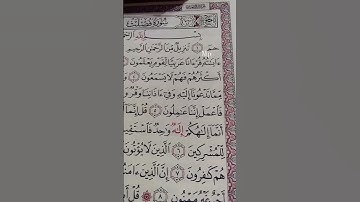 سُورَةُ فُصِّلَتْ
بِسْمِ اللَّهِ الرَّحْمَ
حمٓ ١ تَنزِيلٌ مِّنَ الرَّحْمَٰنِ الرَّحِيمِ
ءَايَٰتُهُۥ قُرْءَانًا عَرَبِيًّا لِّقَوْمٍ يَعْلَمُونَ
أَكْثَرُهُمْ فَهُمْ لَا يَسْمَعُونَ
مِّمَّا تَدْعُونَآ إِلَيْهِ وَفِىٓ ءَاذَانِنَا وَقْرٌ وَ
فَٱعْمَلْ إِنَّنَا عَٰمِلُونَ ٥ قُلْ إِنَّمَآ أَ
أَنَّمَآ إِلَٰهُكُمْ إِلَٰهٌ وَٰحِدٌ فَٱسْتَقِي
لِّلْمُشْرِكِينَ ٦ ٱلَّذِينَ لَا يُؤْتُونَ
هُمْ كَٰفِرُونَ ٧ إِنَّ ٱلَّذِينَ ءَامَنُ
أَجْرٌ غَيْرُ مَمْنُونٍ ٨ قُلْ أَ